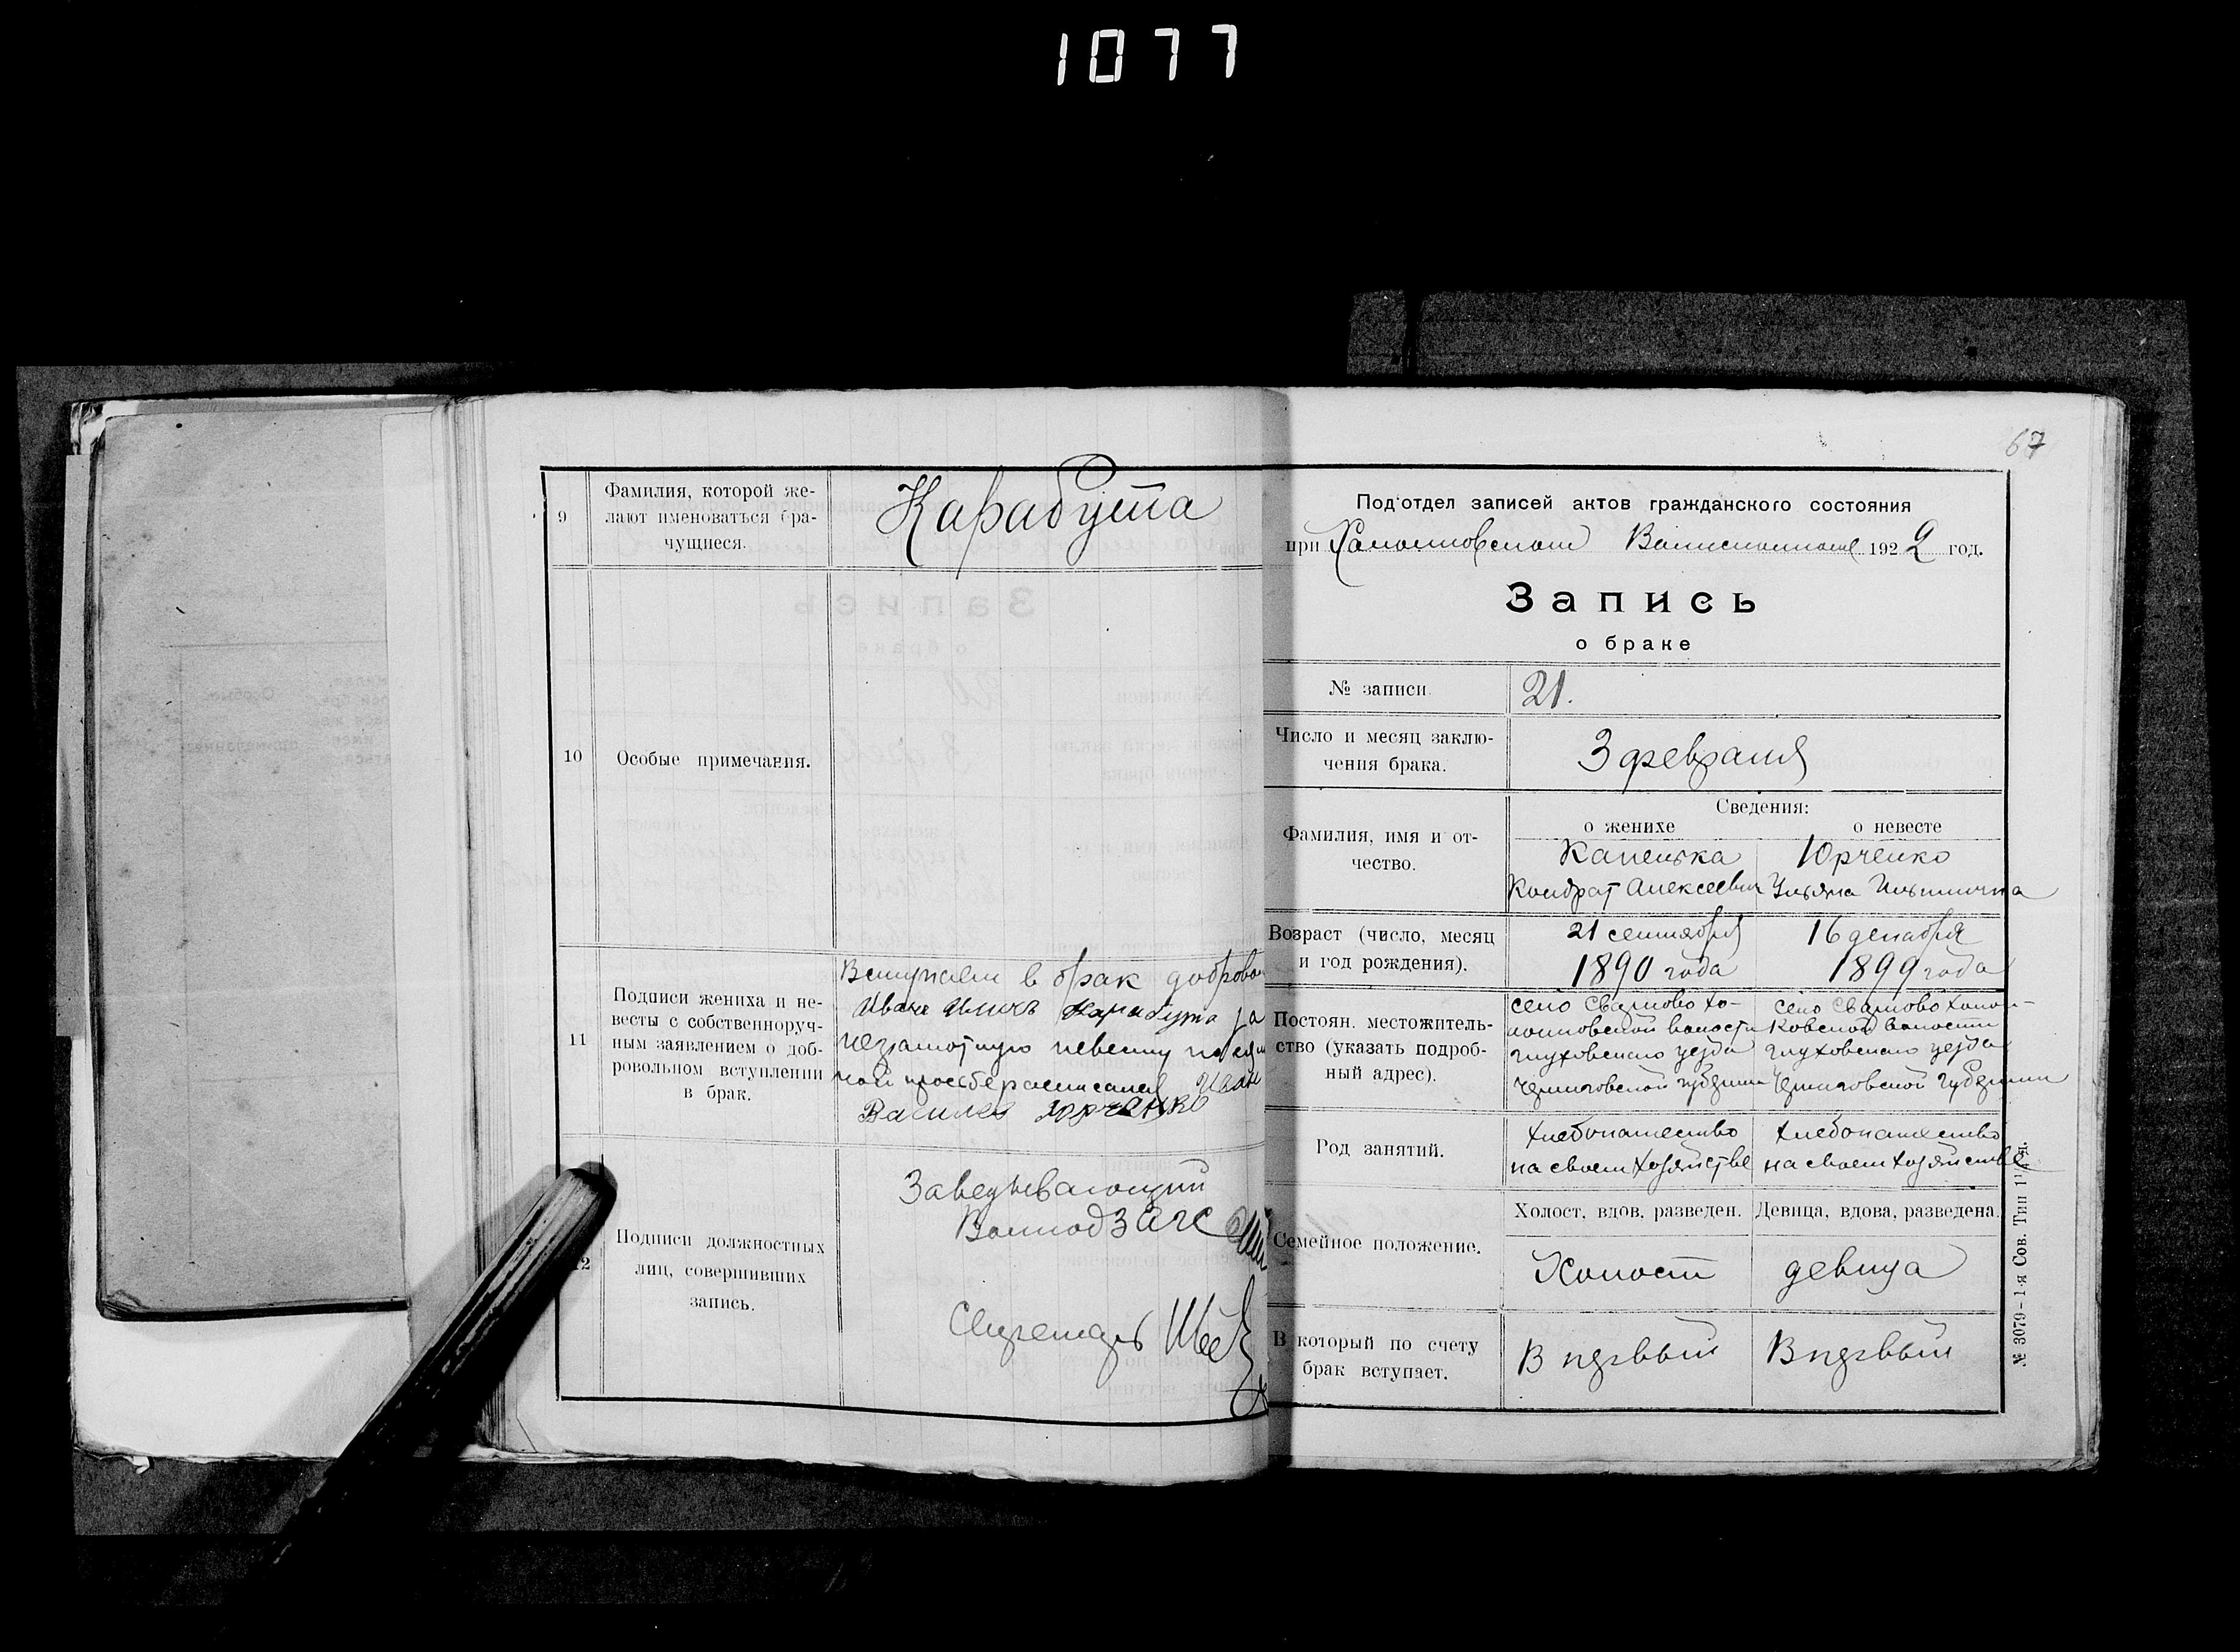 1077
9
Фамилия, которой же-
лают именоваться бра-
чущиеся.
Карабута
10
Особые примечания.
11
Подписи жениха и не-
весты с собственноруч-
ным заявлением о доб-
ровольном вступлении
в брак.
Вступаем в брак добровол
Карабута за
неграмотную невесту по ея ли
чной просьбе расписался Иван
Василев Юрченко
12
Подписи должностных
лиц, совершивших
запись.
Заведывающий
ЗАГС
Секретарь
67
Подотдел записей актов гражданского состояния
при 1922 год.
Запись
о браке
№ записи
21.
Число и месяц заклю-
чения брака.
3 февраля
Сведения:
о женихе
о невесте
Фамилия, имя и от-
чество.
Капелька
Кондрат Алексеевич
Юрченко
Ульяна Ильинична
Возраст (число, месяц
и год рождения).
21 сентября
1890 года
16 декабря
1899 года
Постоян. местожитель-
ство (указать подроб-
ный адрес).
село Сварково Хо-
лопковской волости
Глуховского уезда
Черниговской губернии
село Сварково Холоп-
ковской волости
Глуховского уезда
Черниговской губернии
Род занятий.
Хлебопашество
на своем хозяйстве
Хлебопашество
на своем хозяйстве
Семейное положение.
Холост, вдов, разведен.
Девица, вдова, разведена.
Холост
девица
В который по счету
брак вступает.
В первый
В первый
№ 3079-1-я Сов. Тип